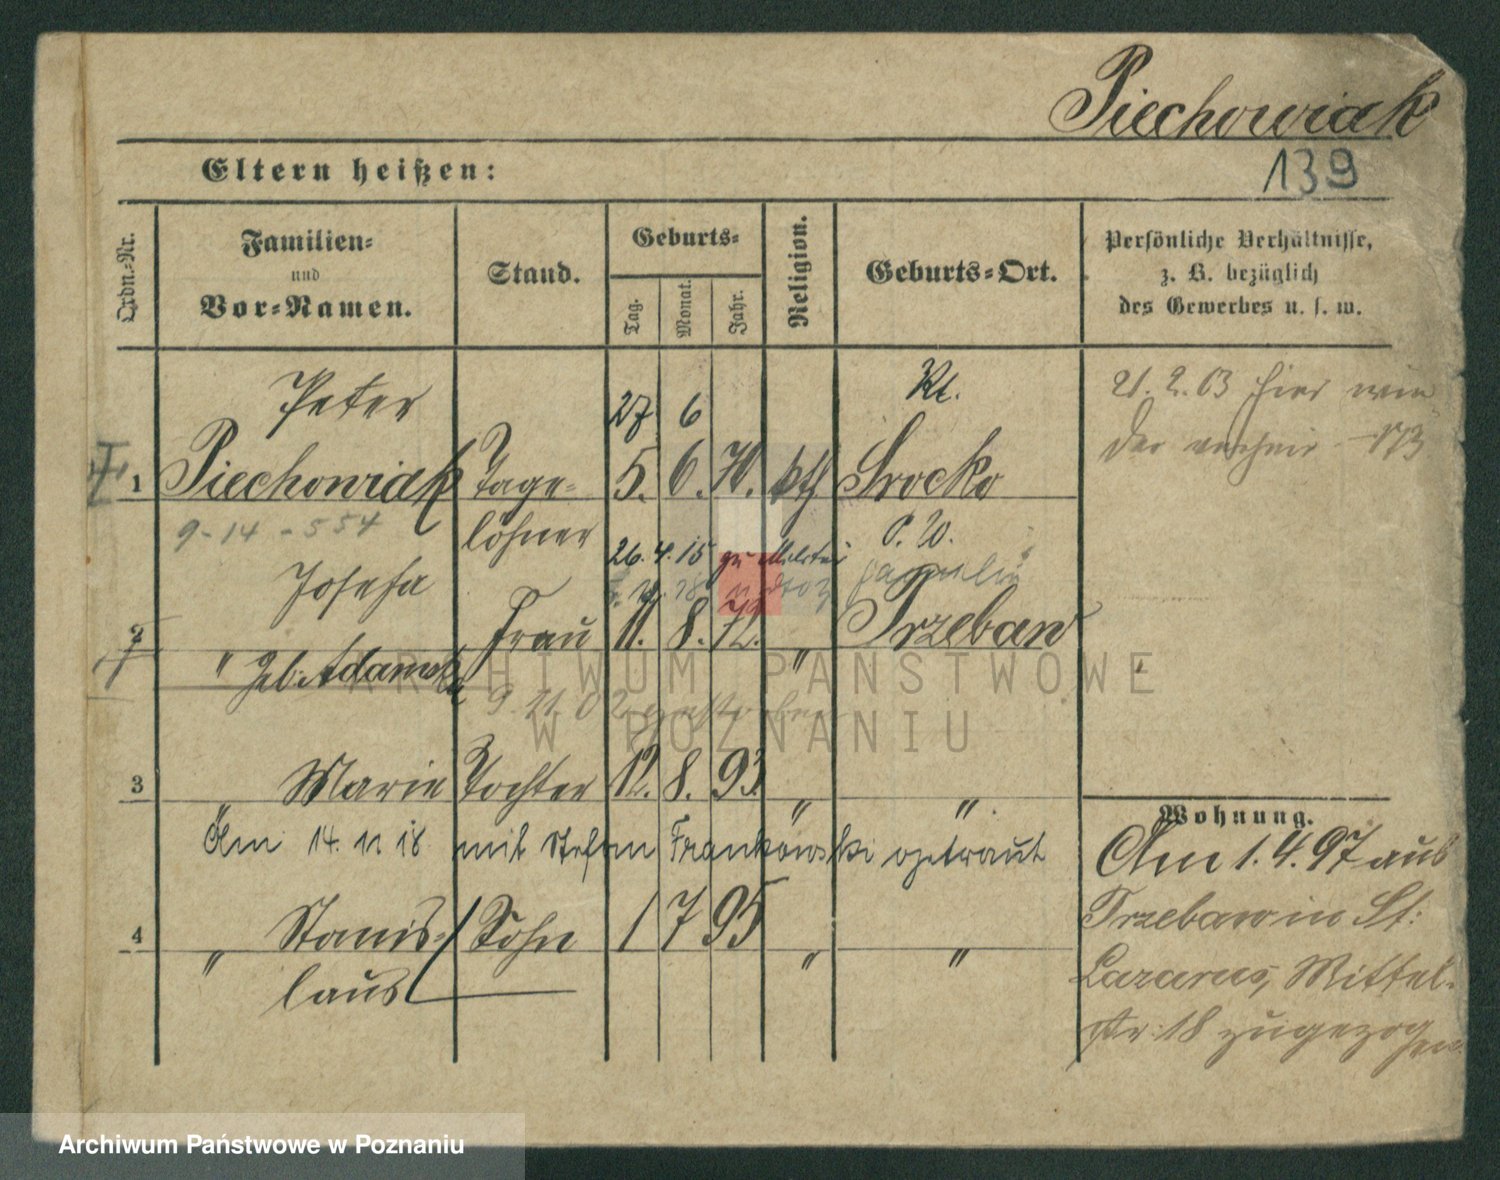 Piechowiak
139
Eltern heißen:
Ordn.-Nr.
Familien-
und
Vor-Namen.
Stand.
Geburts-
Tag.
Monat.
Jahr.
Religion.
Geburts-Ort.
Persönliche Verhältnisse,
z. B. bezüglich
des Gewerbes u. s. w.
Peter
27 6
Kl.
21. 2. 03 hier
1 Piechowiak Tage- 5. 6. 70. kth Srocko
9-14 - 554
löhner
P. W.
26. 4. 15 zu Militär
Josefa
2 Frau 11. 8. 72. " Trzebaw
" geb. Adamska
9. 11. 02
ARCHIWUM PAŃSTWOWE
W POZNANIU
3 " Marie Tochter 12. 8. 93. " "
Am 14. 11. 18 mit Stefan Frankowski getraut
4 " Stanis- Sohn 1 7 95 " "
laus
Wohnung.
Am 1. 4. 97 aus
Trzebaw in St.
Lazarus, Mittel-
str. 18 zugezogen
Archiwum Państwowe w Poznaniu